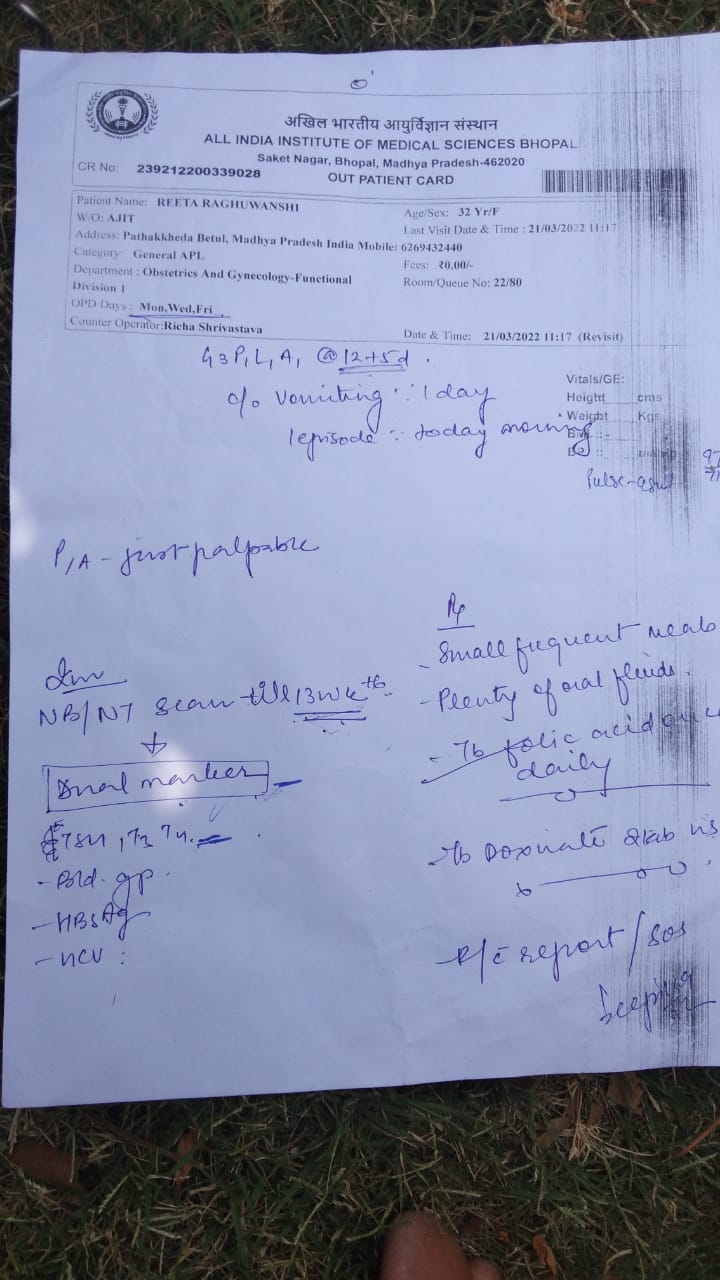 अखिल भारतीय आयुर्विज्ञान संस्थान
ALL INDIA INSTITUTE OF MEDICAL SCIENCES BHOPAL
Saket Nagar, Bhopal, Madhya Pradesh-462020
CR No: 239212200339028
OUT PATIENT CARD
Patient Name: REETA RAGHUWANSHI
Age/Sex: 32 Yr/F
W/O: AJIT
Last Visit Date & Time : 21/03/2022 11:17
Address: Pathakkheda Betul, Madhya Pradesh India Mobile: 6269432440
Category: General APL
Fees: ₹0.00/-
Department : Obstetrics And Gynecology-Functional
Division I
Room/Queue No: 22/80
OPD Days : Mon,Wed,Fri
Counter Operator:Richa Shrivastava
Date & Time: 21/03/2022 11:17 (Revisit)
G3P1L1A1 @ 12+5d .
c/o vomiting ∵ 1 day
1 episode ∵ today morning
Vitals/GE:
Height cms
Weight Kgs
Pulse-
P/A - just palpable
NB/NT scan till 13 wk
↓
Dual marker
- Bld. gp.
- HBsAg
- HCV :
Rx
- Small frequent meals
- Plenty of oral fluids.
- Tb folic acid
daily
- Tb Doxinate
R/c report / SOS